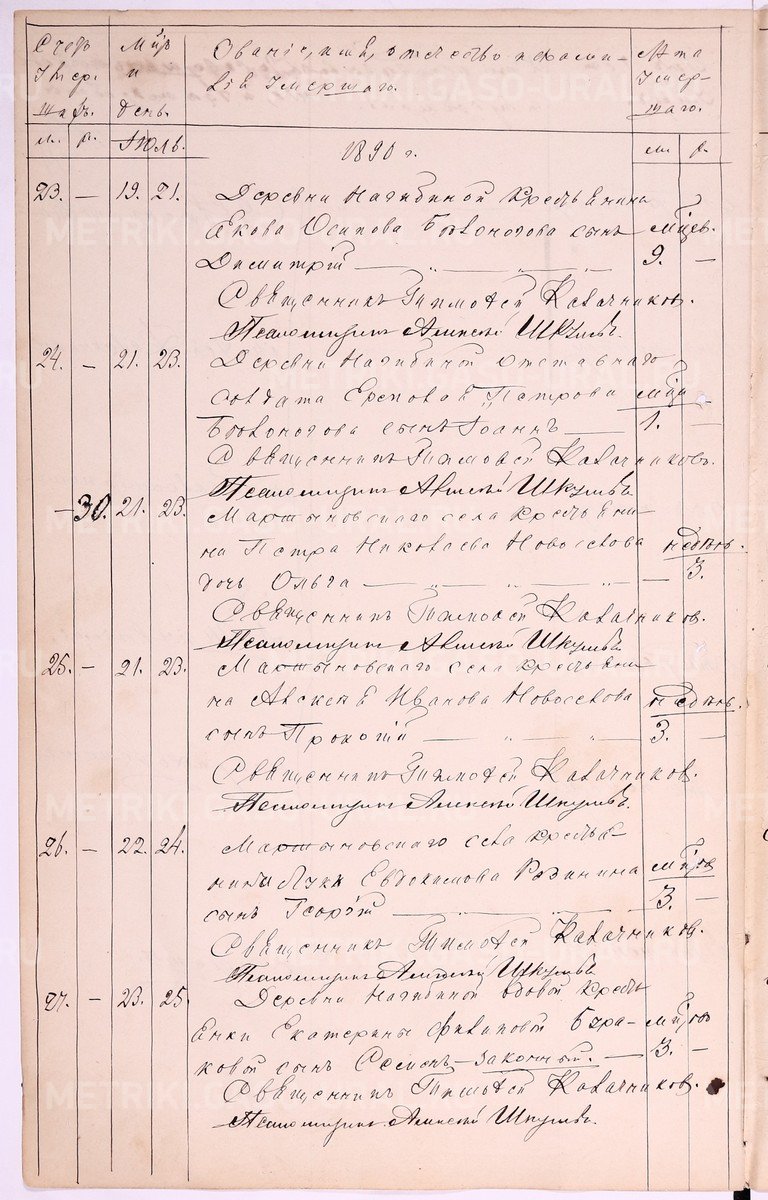 Счетъ Умер- шихъ.
Мѣс. и день.
Званіе, имя, отчество и фами-
лія Умершаго.
Лѣта Умер- шаго.
м. ж. Іюль. 1890 г. м. ж.
23. — 19. 21. Деревни Нагибиной крестьянина
Якова Осипова сынъ мѣсяц.
Димитрій — „ — „ — „ 9. —
Священникъ Тимоѳей Калачниковъ.
Псаломщикъ Алексѣй Шкулевъ.
24. — 21. 23. Деревни Нагибиной отставнаго
солдата Петрова мѣся
сынъ Іоаннъ — 1. —
Священникъ Тимоѳей Калачниковъ.
Псаломщикъ Алексѣй Шкулевъ
— 30. 21. 23. Мартыновскаго села крестьяни-
на Петра Николаева Новоселова недѣль.
дочь Ольга — „ — „ — „ — 3.
Священникъ Тимоѳей Калачников.
Псаломщикъ Алексѣй Шкулевъ
25. — 21. 23. Мартыновскаго села крестьяни-
на Алексѣя Иванова Новоселова недѣль.
сынъ Прокопій — „ — „ 3. —
Священникъ Тимоѳей Калачников.
Псаломщикъ Алексѣй Шкулевъ.
26. — 22. 24. Мартыновскаго села крестья-
нина Луки Евдокимова мѣсяц
сынъ Георгій — „ — „ 3. —
Священникъ Тимоѳей Калачников.
Псаломщикъ Алексѣй Шкулевъ
27. — 23. 25. Деревни Нагибиной вдовой кресть
янки Екатерины Филиповой мѣсяц
сынъ Семенъ — законный. — 3. —
Священникъ Тимоѳей Калачников.
Псаломщикъ Алексѣй Шкулевъ.